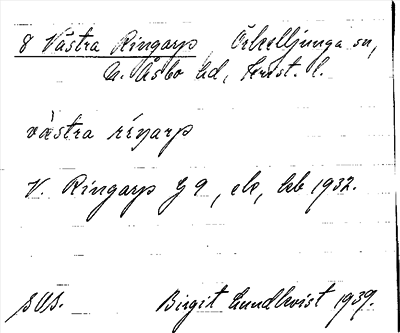 8 Västra Ringarp, Örkelljunga sn,
N. Åsbo hd, Krist. l.
västra riŋarp
V. Ringarp G 9, ek, kb 1932.
Birgit Lundkvist 1939.